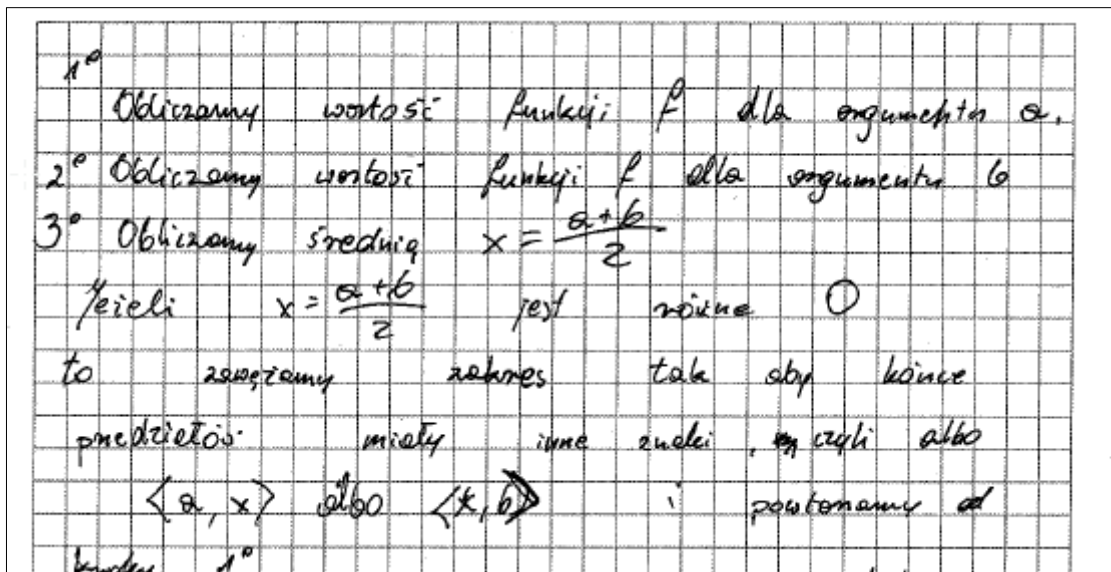 1°
Obliczamy wartość funkcji f dla argumentu a.
2° Obliczamy wartość funkcji f dla argumentu b
3° Obliczamy średnią x = a+b/2
Jeżeli x = a+b/2 jest różne 0
to zawężamy zakres tak aby końce
przedziałów miały inne znaki, czyli albo
<a, x> albo <x, b> i powtarzamy od
1°